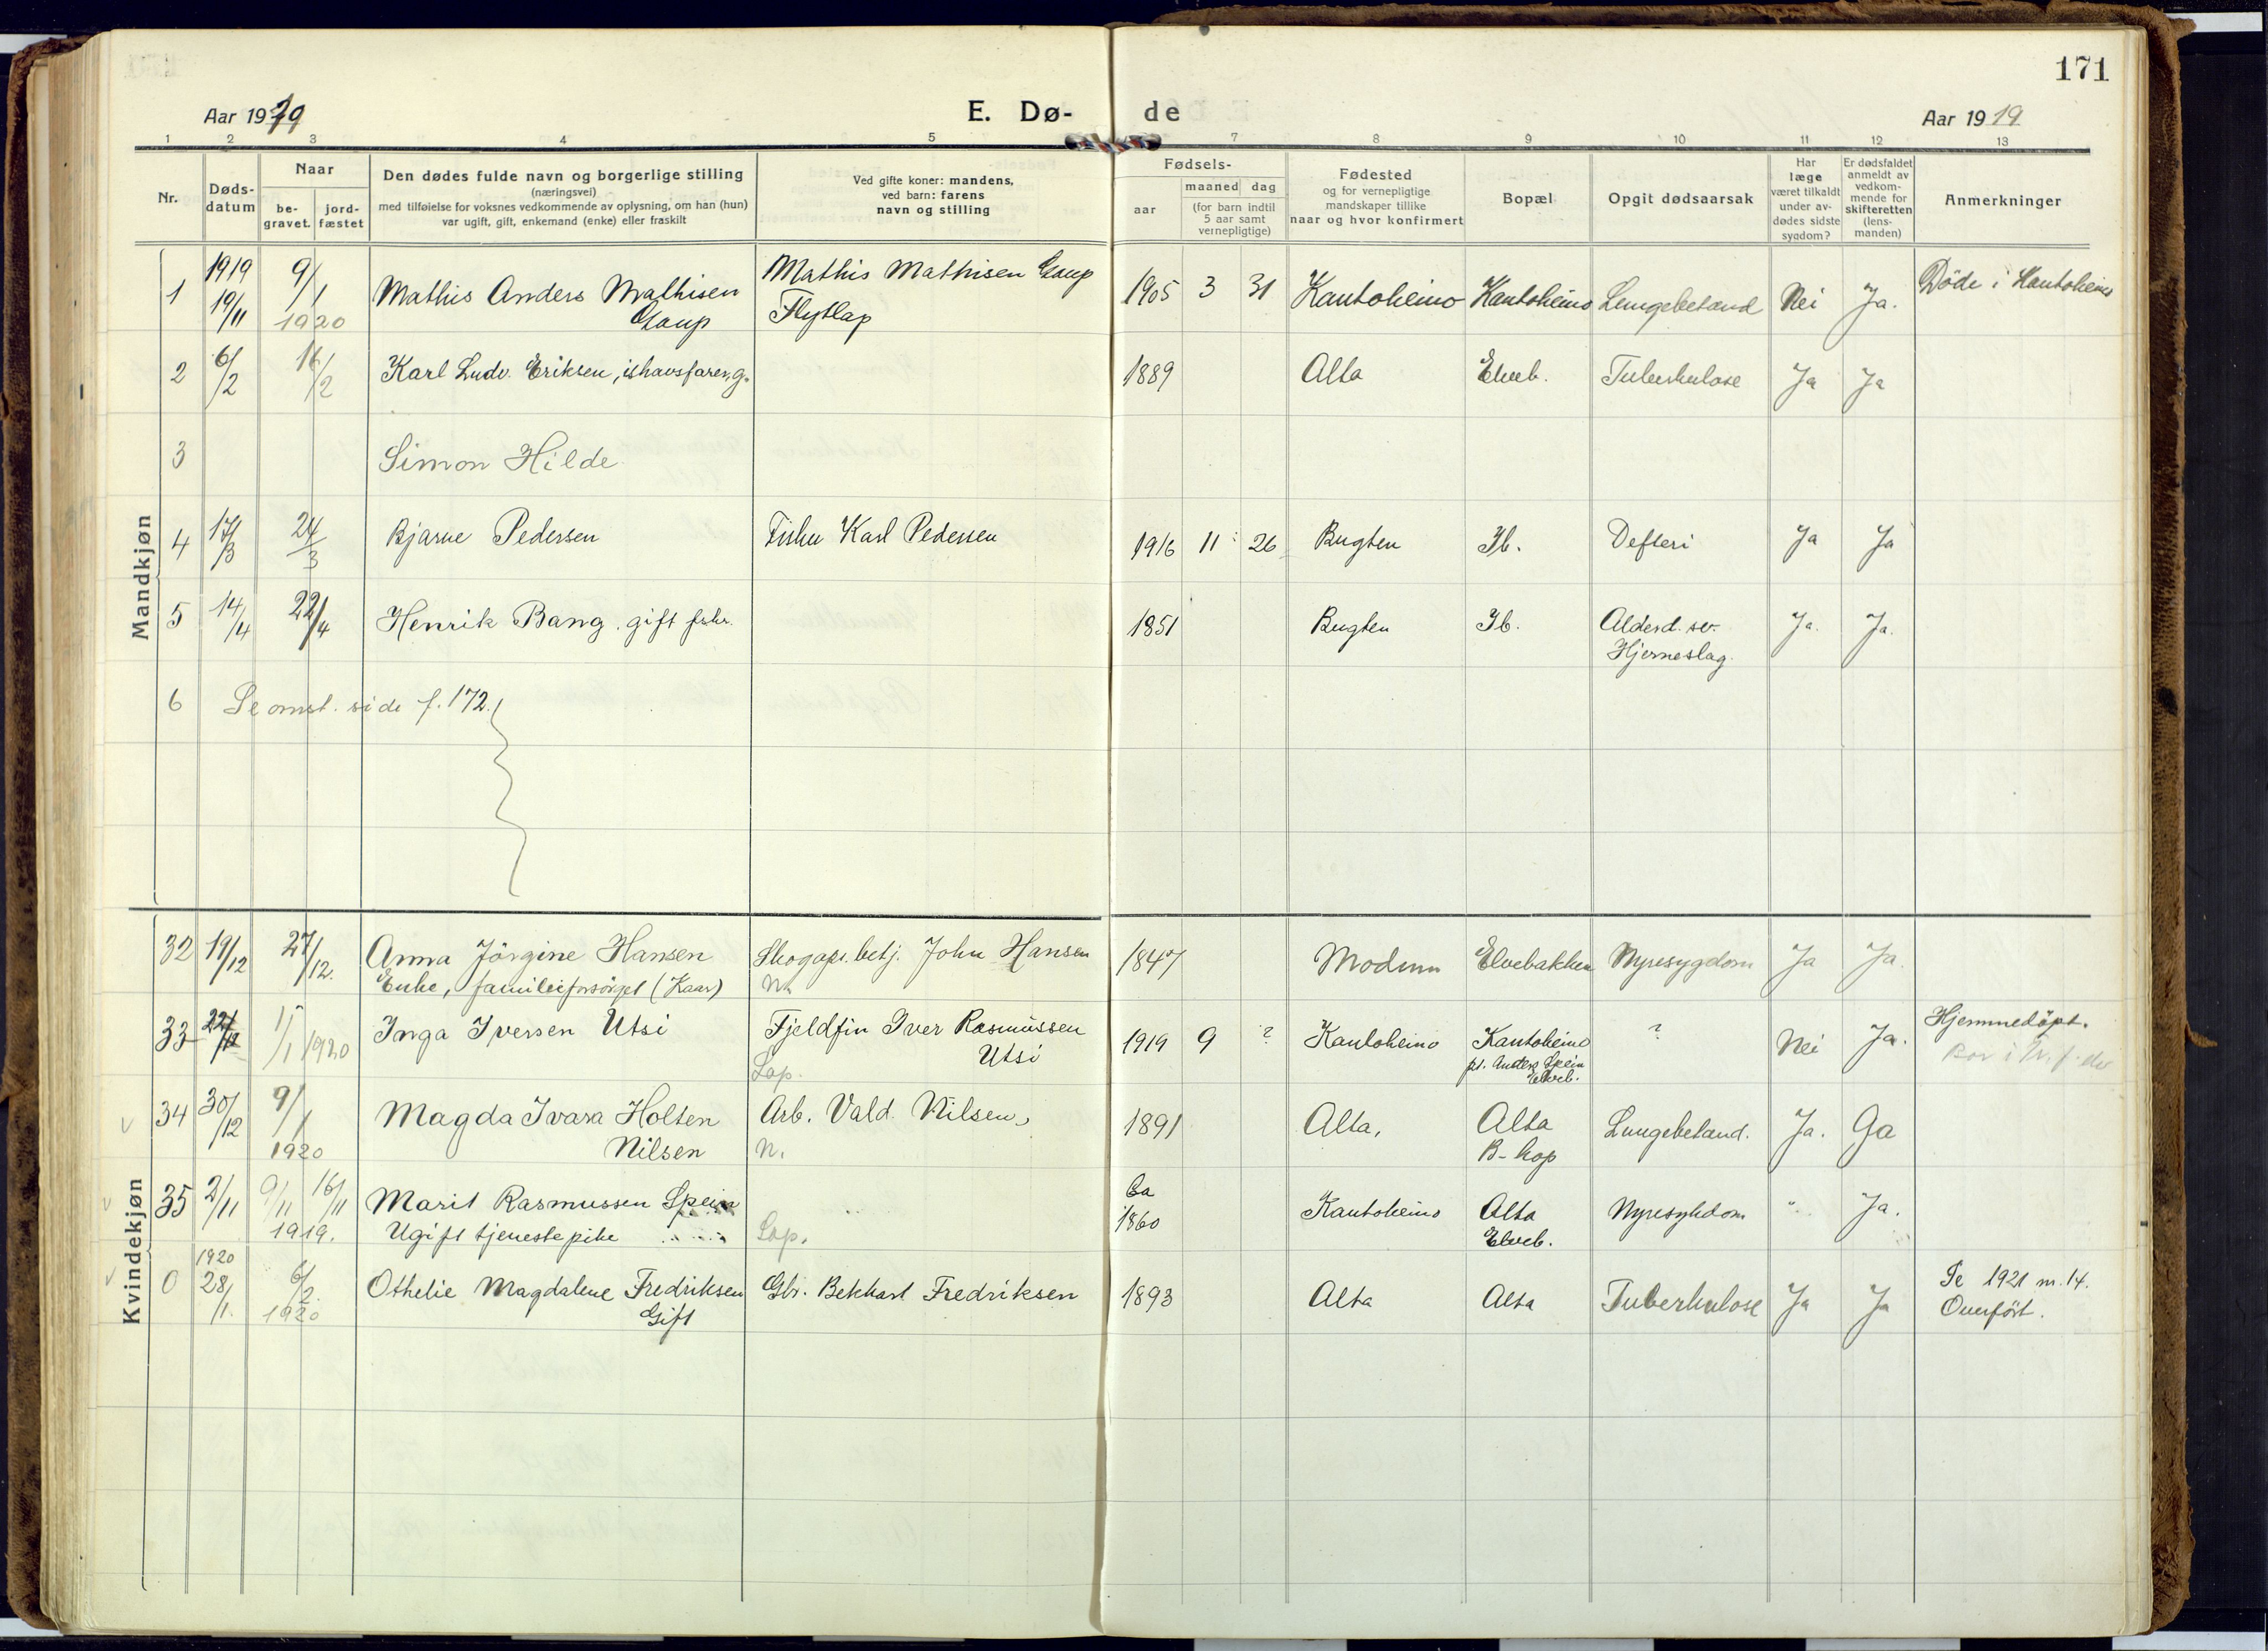 171
Aar 1919
E. Dø-
de
Aar 1919
1 2 3 4 5 7 8 9 10 11 12 13
Nr.
Døds-
datum
Naar
be-
gravet.
jord-
fæstet
Den dødes fulde navn og borgerlige stilling
(næringsvei)
med tilføielse for voksnes vedkommende av oplysning, om han (hun)
var ugift, gift, enkemand (enke) eller fraskilt
Ved gifte koner: mandens,
ved barn: farens
navn og stilling
Fødsels-
aar
maaned dag
(for barn indtil
5 aar samt
vernepligtige)
Fødested
og for vernepligtige
mandskaper tillike
naar og hvor konfirmert
Bopæl
Opgit dødsaarsak
Har
læge
været tilkaldt
under av-
dødes sidste
sygdom?
Er dødsfaldet
anmeldt av
vedkom-
mende for
skifteretten
(lens-
manden)
Anmerkninger
Mandkjøn
1 1919 19/11 9/1 1920 Mathis Anders Mathisen Gaup Mathis Mathisen Gaup Flytlap 1905 3 31 Kautokeino Kautokeino Lungebetænd Nei Ja. Döde i Kautokeino
2 6/2 16/2 Karl Ludv. Eriksen, ishavsfarer, g. 1889 Alta Elveb. Tuberkulose Ja Ja
3 Simon Hilde
4 17/3 24/3 Bjarne Pedersen Fisker Karl Pedersen 1916 11 26 Bugten Ib. Defteri Ja Ja
5 14/4 22/4 Henrik Bang. gift fskr. 1851 Bugten Ib. Alderd. sv. Hjerneslag. Ja. Ja.
6 Se omst. side f. 172.
Kvindekjøn
32 19/12 27/12. Anna Jörgine Hansen Enke, familieforsörget (Kaar) Skogops.betj. John Hansen N. 1847 Modum Elvebakken Nyresygdom Ja Ja
33 22/12 11/1 1920 Inga Iversen Utsi Fjeldfin Iver Rasmussen Utsi Lap. 1919 9 ? Kautokeino Kautokeino pt. Anders Spein Elveb. ? Nei Ja. Hjemmedöpt. Bor i
34 30/12 9/1 1920 Magda Ivara Holten Nilsen Arb. Vald. Nilsen, N. 1891 Alta, Alta B-hop Lungebetænd. Ja. Ja
35 2/11 9/11 16/11 1919. Marit Rasmussen Spein Ugift tjenestepike Lap. Ca 1860 Kautokeino Alta Elveb. Nyresykdom " Ja.
0 1920 28/1. 6/2. 1920 Othelie Magdalene Fredriksen Gift Gbr. Bekkart Fredriksen 1893 Alta Alta Tuberkulose Ja Ja Se 1921 nr. 14. Overfört.